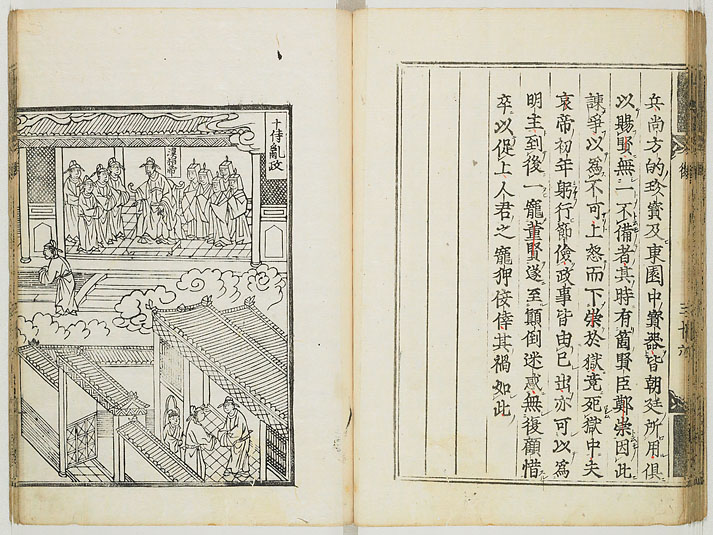 兵尚方的珍寶及東園中寶器皆朝廷所用俱
以賜賢無一不備者其時有箇賢臣鄭崇因此
諫爭以為不可上怒而下崇於獄竟死獄中夫
哀帝初年躬行節儉政事皆由己出亦可以為
明主到後一寵董賢遂至顛倒迷惑無復顧惜
卒以促上人君之寵狎佞倖其禍如此
十侍亂政
漢桓帝